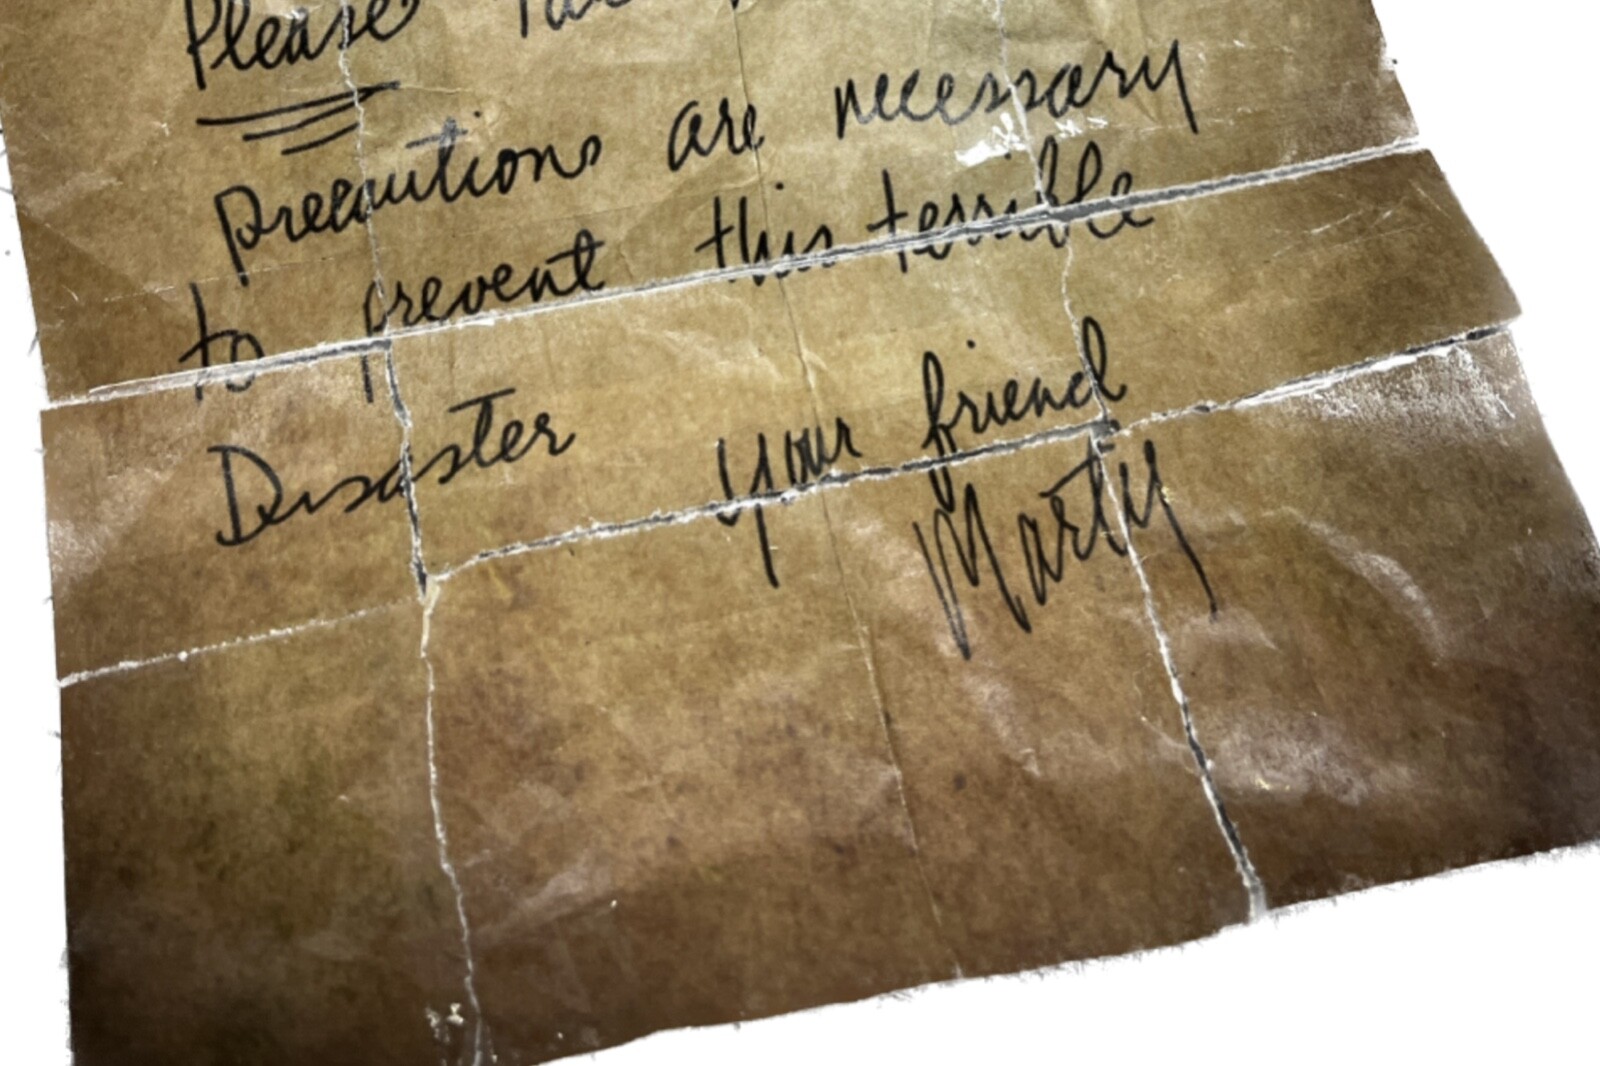 Please
precautions are necessary
to prevent this terrible
Disaster your friend
Marty